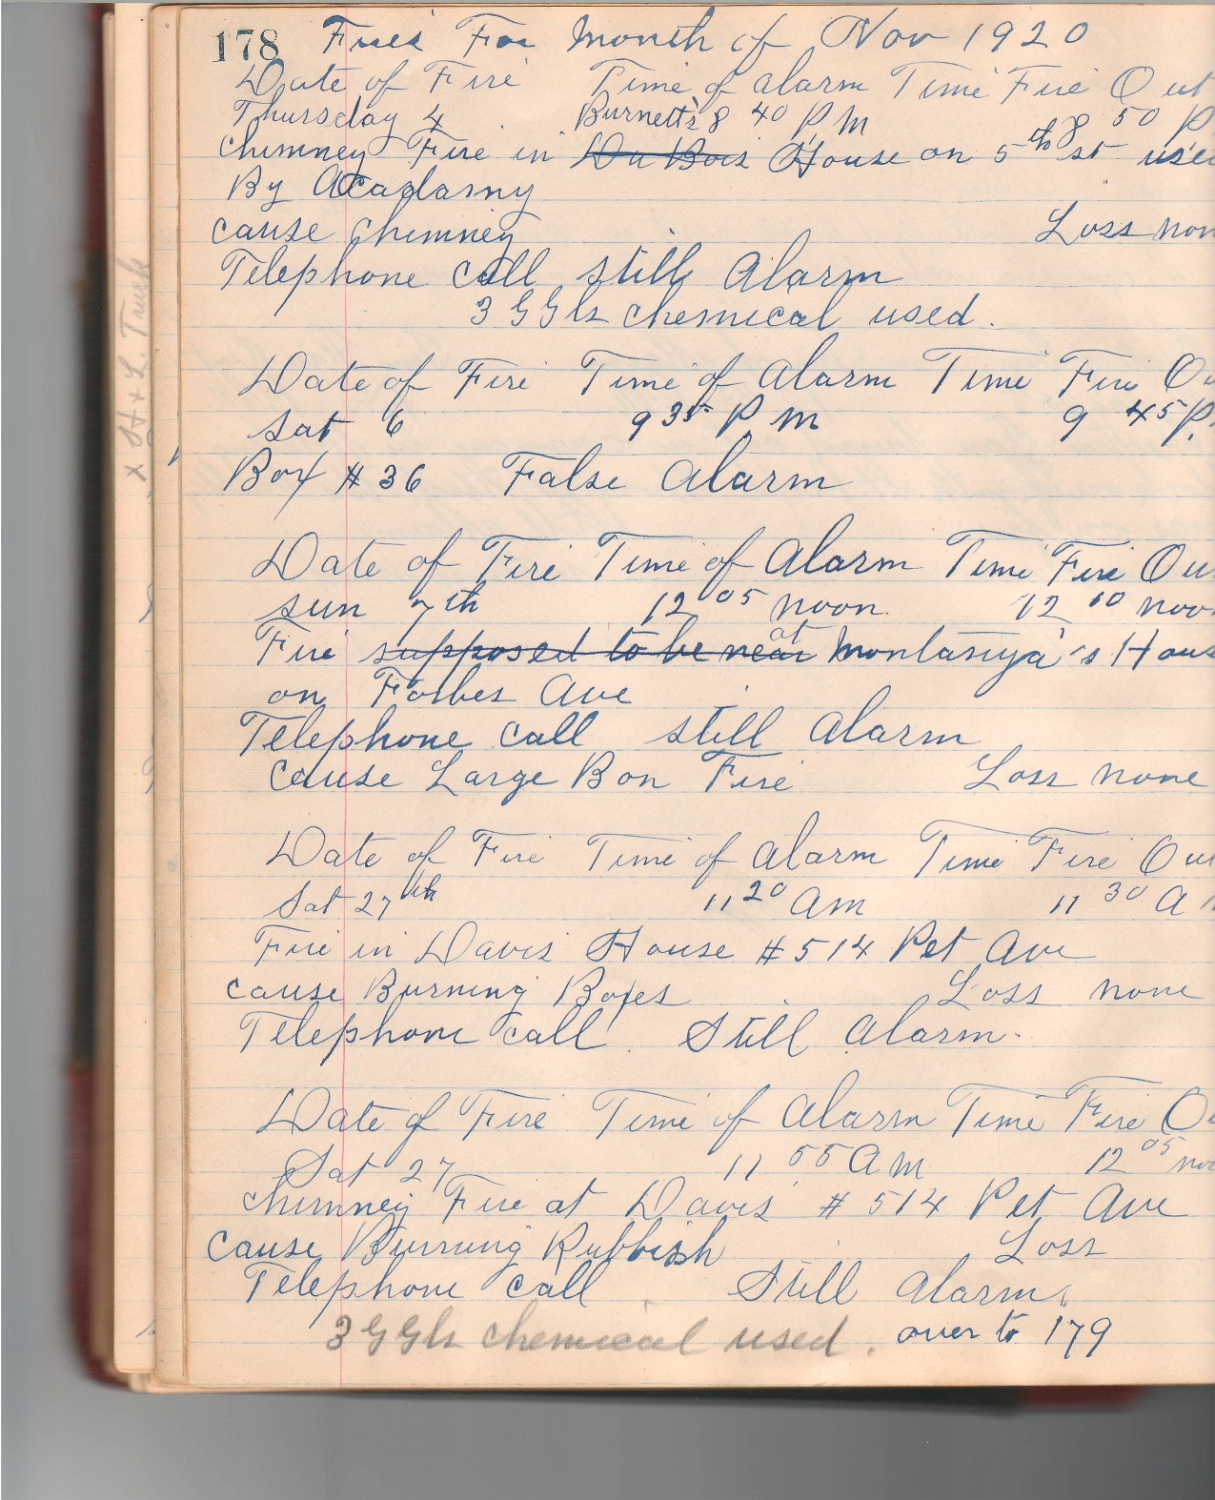 178 Fires For Month of Nov 1920
Date of Fire Time of alarm Time Fire Out
Thursday 4 Burnett's 8 40 P M 8 50 P
chimney Fire in Du Bois House on 5th st used
By Acadamy
cause chimney Loss non
Telephone call still Alarm
3 GGls chemical used.
Date of Fire Time of Alarm Time Fire Ou
Sat 6 9 35 P M 9 45 P.
Box # 36 False Alarm
Date of Fire Time of Alarm Time Fire Ou
sun 7th 12 05 noon 12 10 noo
at
Fire supposed to be near Hous
on Forbes Ave
Telephone call still Alarm
cause Large Bon Fire Loss none
Date of Fire Time of Alarm Time Fire Ou
Sat 27th 11 20 Am 11 30 A
Fire in Davis House # 514 Pet Ave
cause Burning Boxes Loss none
Telephone call Still Alarm.
Date of Fire Time of Alarm Time Fire Ou
Sat 27 11 55 A M 12 05 noo
chimney Fire at Davis # 514 Pet Ave
cause Burning Rubbish Loss
Telephone call Still Alarm.
3 GGls chemical used. over to 179
x H + L. Truck